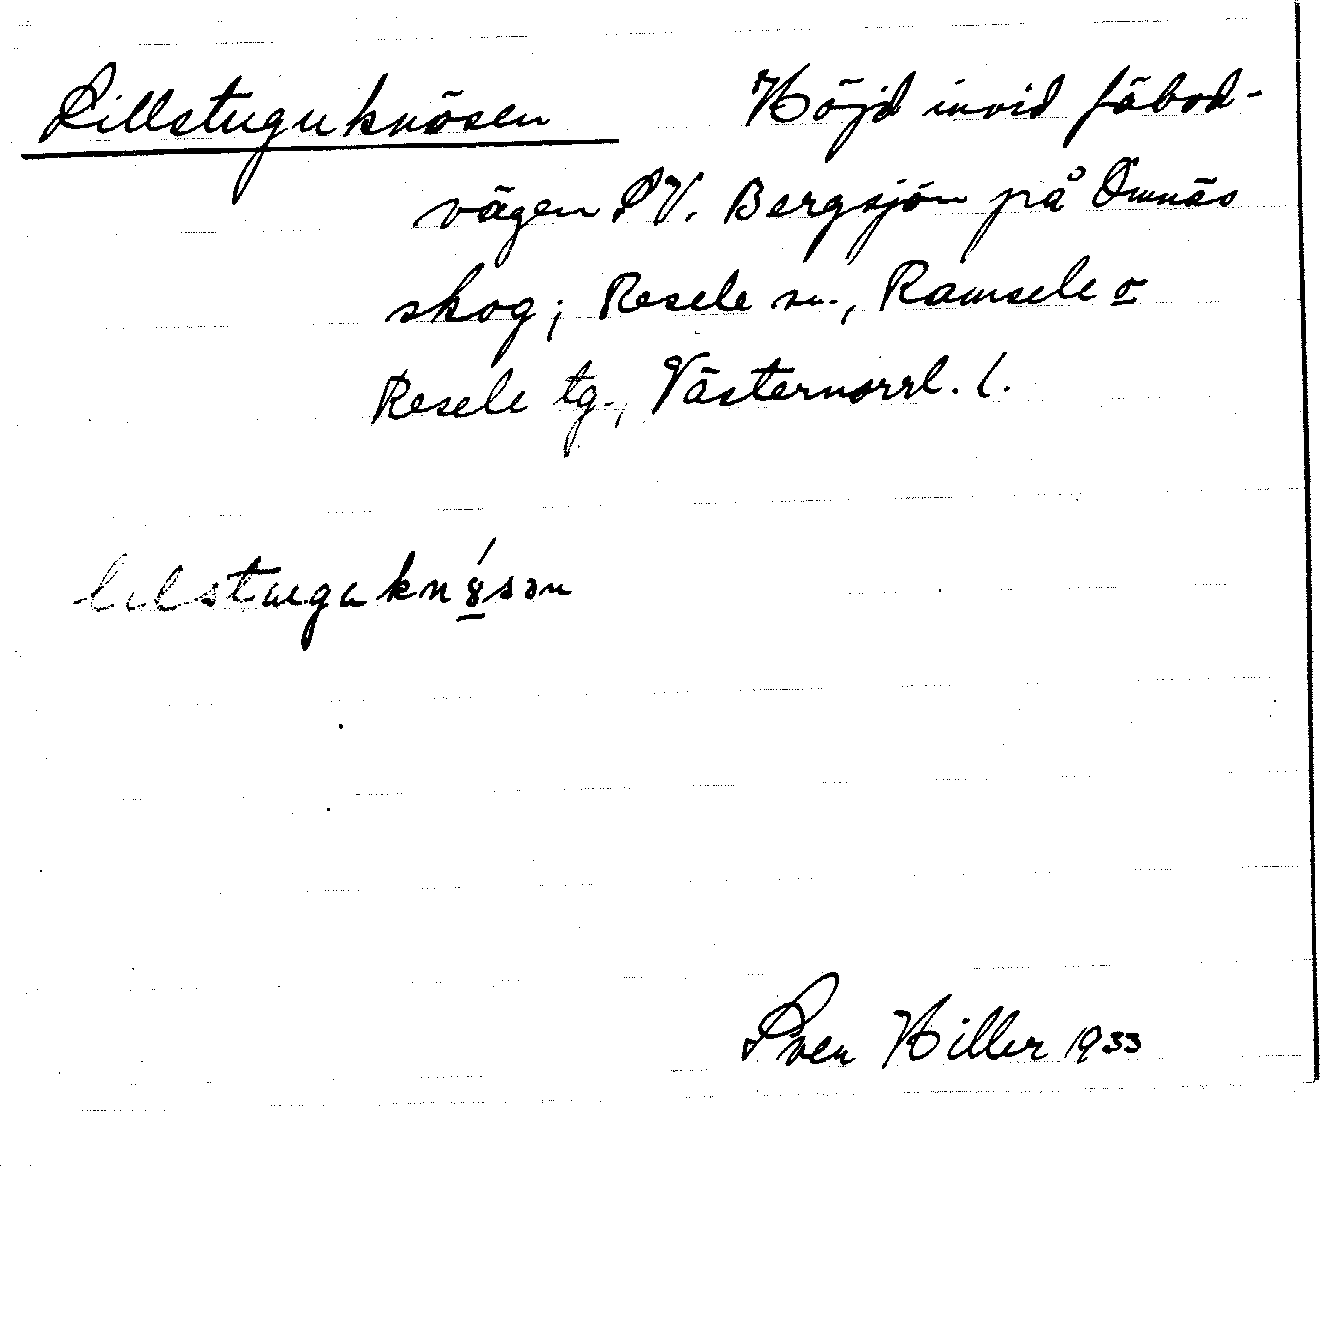 Lillstuguknösen Höjd invid fäbod-
vägen SV. Bergsjön på Omnäs
skog; Resele sn., Ramsele o
Resele tg., Västernorrl. l.
Sven Hiller 1933